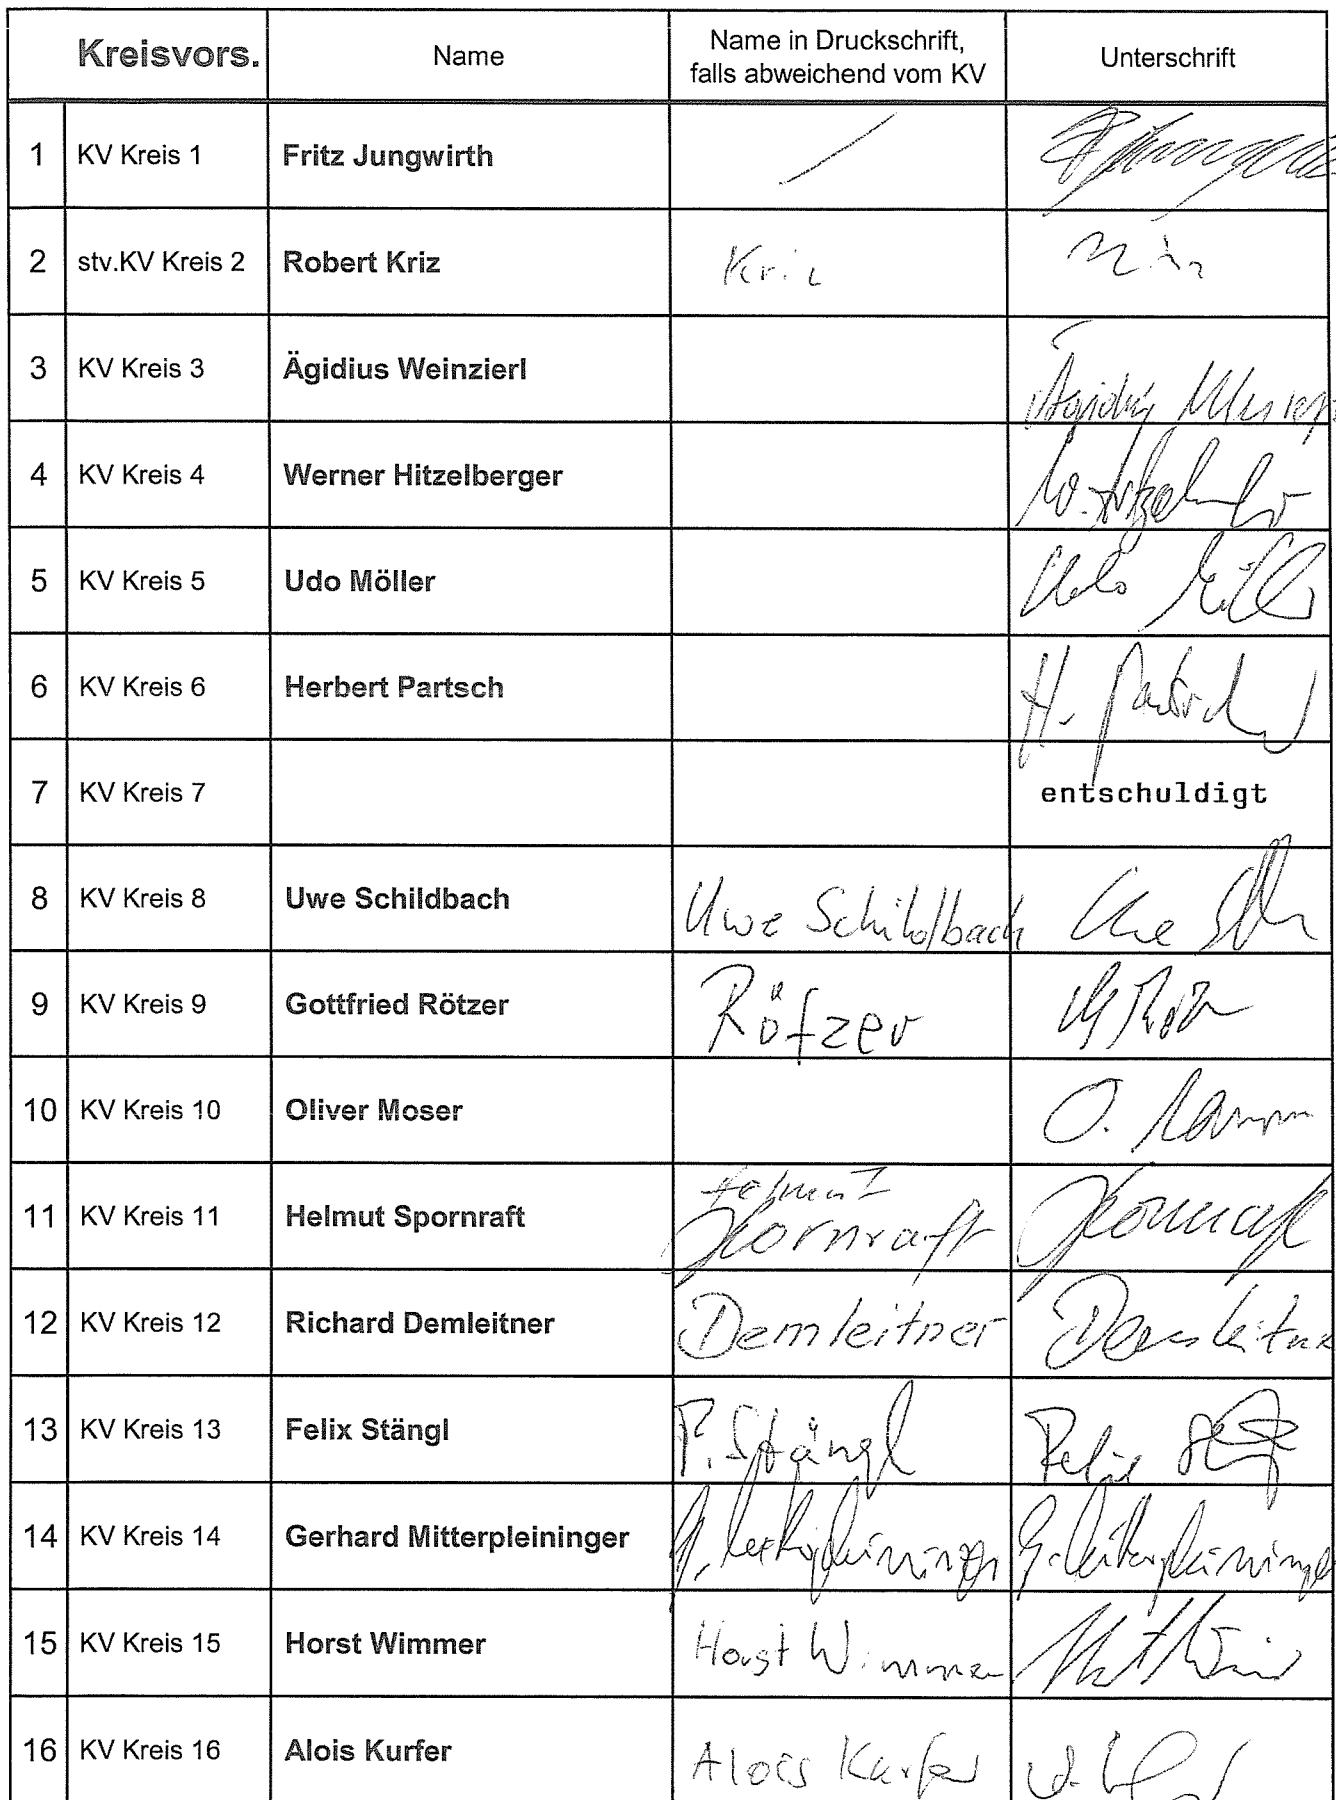 Kreisvors. Name Name in Druckschrift, falls abweichend vom KV Unterschrift
1 KV Kreis 1 Fritz Jungwirth
2 stv.KV Kreis 2 Robert Kriz Kriz
3 KV Kreis 3 Ägidius Weinzierl
4 KV Kreis 4 Werner Hitzelberger
5 KV Kreis 5 Udo Möller Udo Möller
6 KV Kreis 6 Herbert Partsch H. Partsch
7 KV Kreis 7 entschuldigt
8 KV Kreis 8 Uwe Schildbach Uwe Schildbach Uwe
9 KV Kreis 9 Gottfried Rötzer Rötzer
10 KV Kreis 10 Oliver Moser O.
11 KV Kreis 11 Helmut Spornraft Helmut Spornraft Spornraft
12 KV Kreis 12 Richard Demleitner Demleitner Demleitner
13 KV Kreis 13 Felix Stängl F. Stängl Felix
14 KV Kreis 14 Gerhard Mitterpleininger G. Mitterpleininger G. Mitterpleininger
15 KV Kreis 15 Horst Wimmer Horst Wimmer
16 KV Kreis 16 Alois Kurfer Alois Kurfer